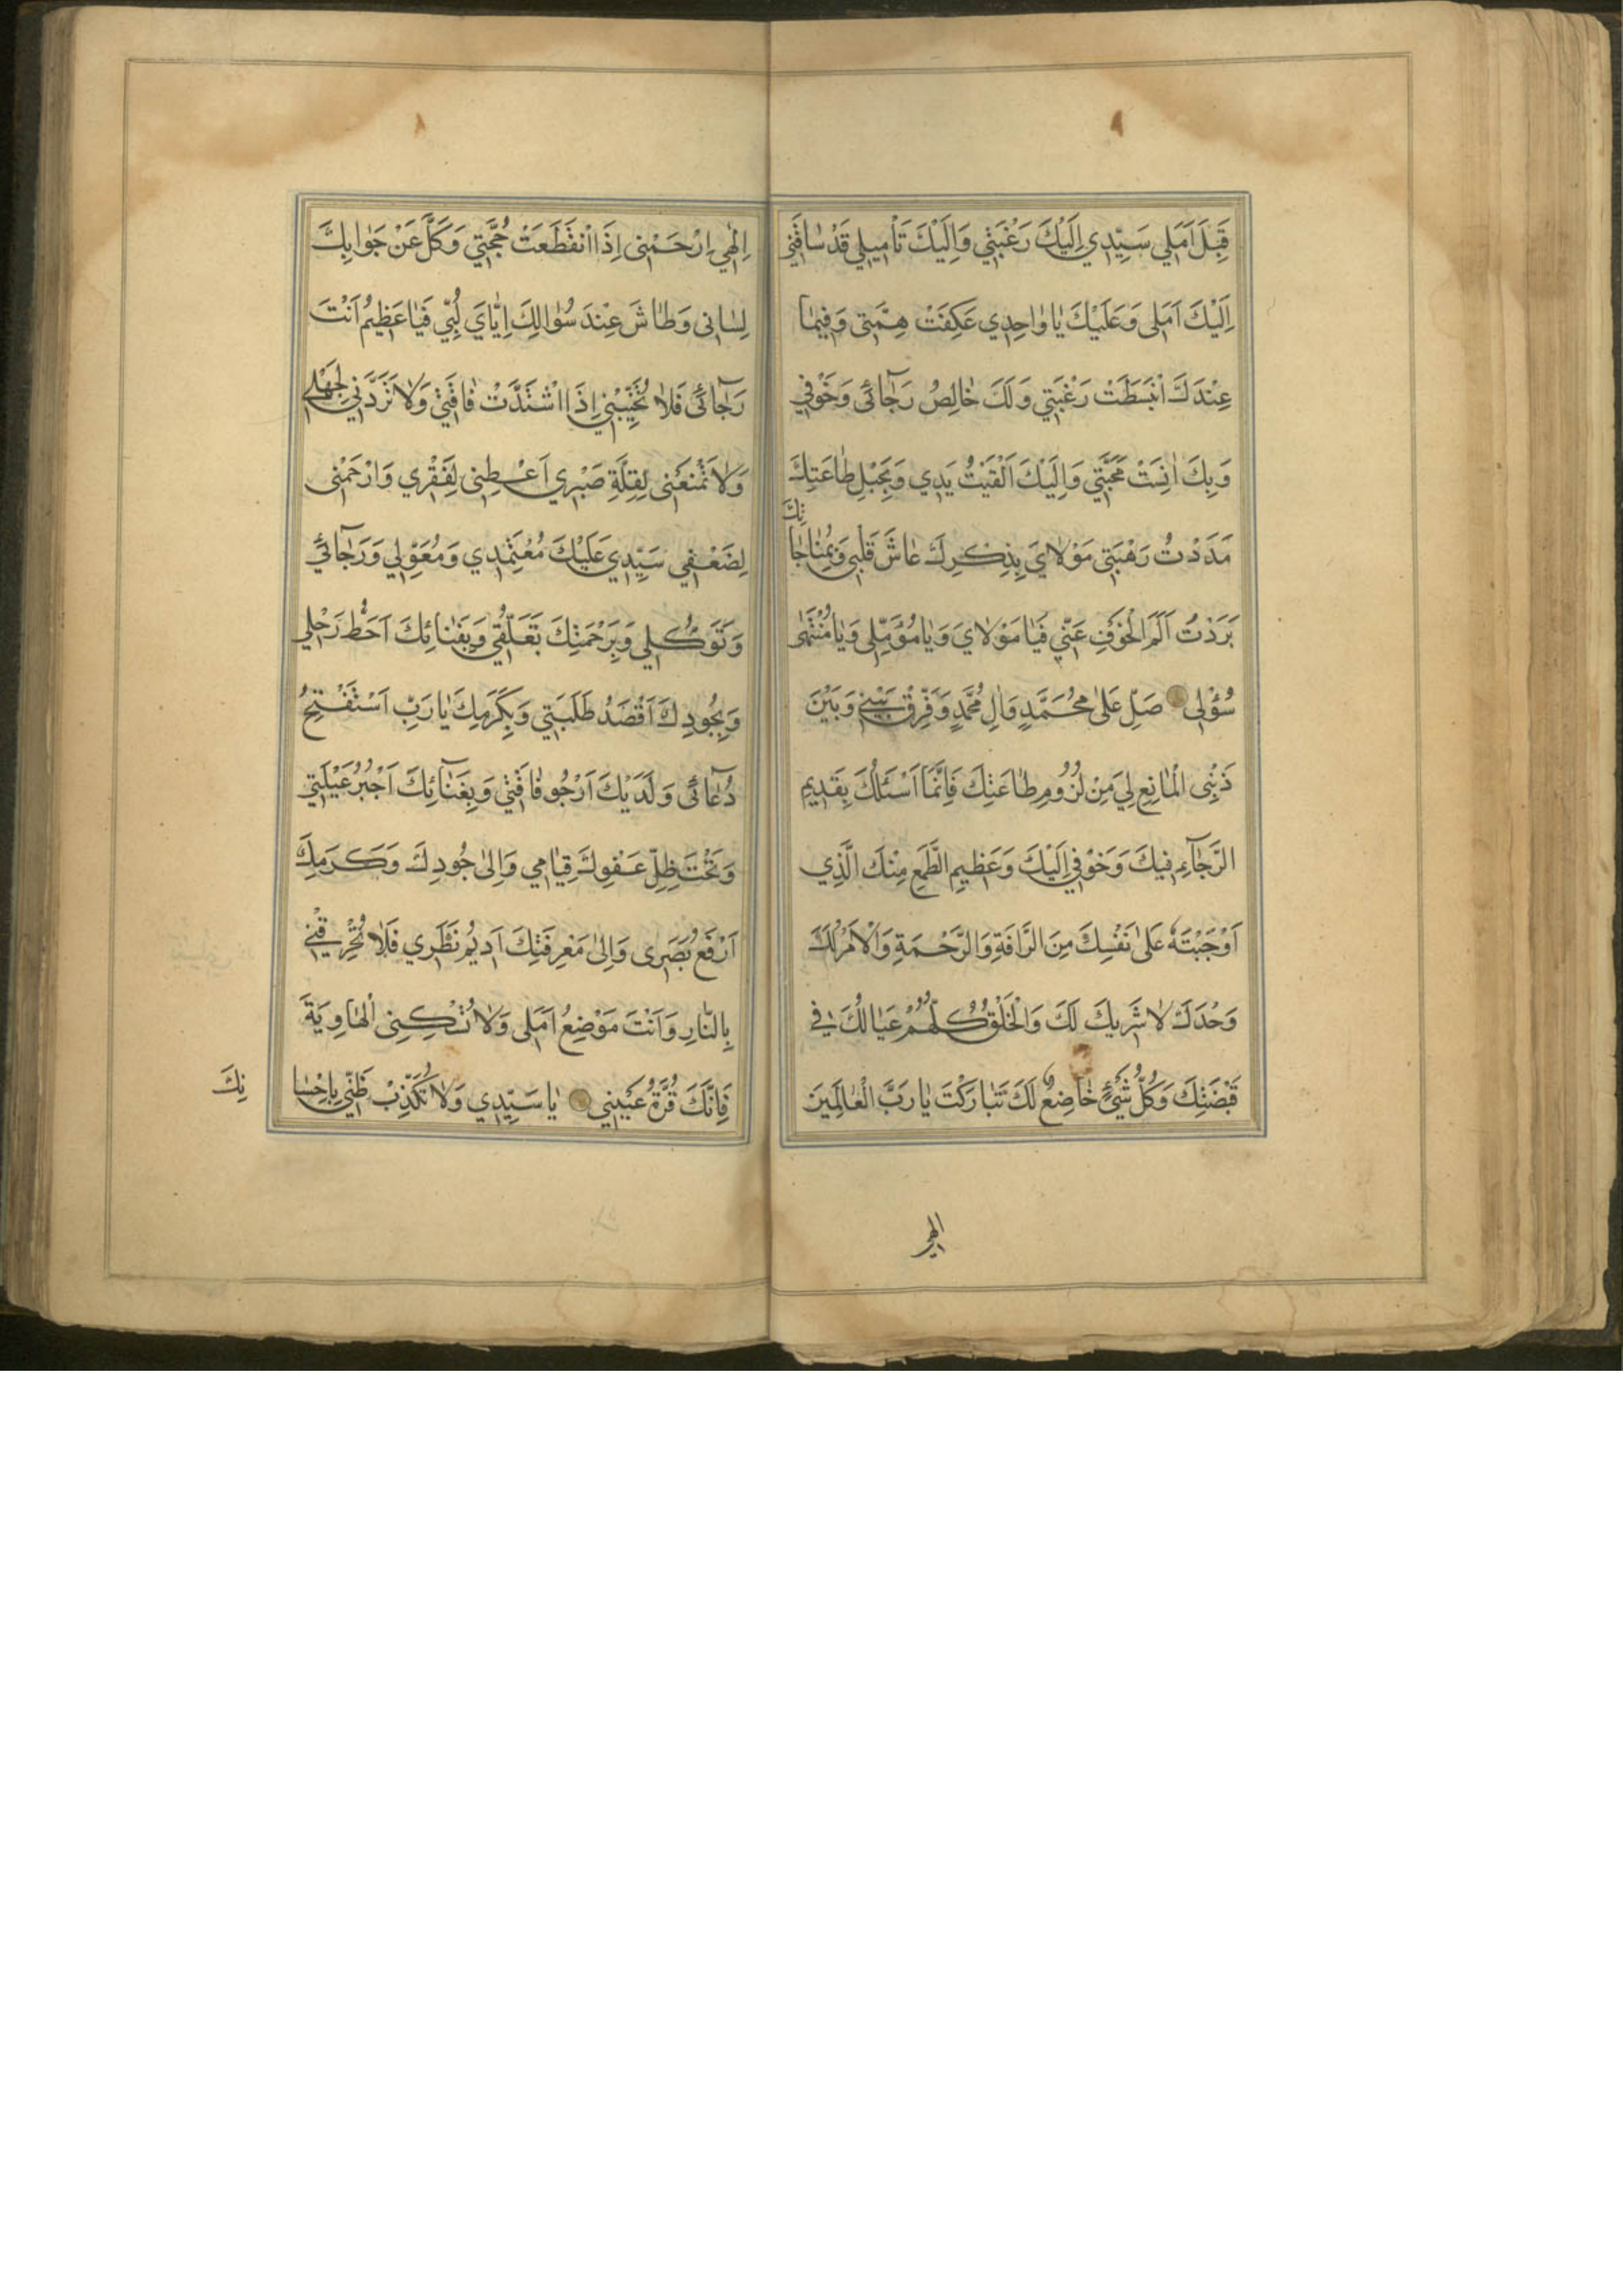 قِبَلَ اَمَلي سَيِّدِي اِلَيْكَ رَغْبَتِي وَاِلَيْكَ تَأْمِيلِي قَدْ سٰاقَنِي
اِلَيْكَ اَمَلِى وَعَلَيْكَ يٰا وٰاحِدِي عَكِفَتْ هِمَّتِي وَفِيمٰا
عِنْدَكَ انْبَسَطَتْ رَغْبَتِي وَلَكَ خٰالِصُ رَجٰآئى وَخَوْفِي
وَبِكَ اَنِسَتْ مَحَبَّتِي وَاِلَيْكَ اَلْقَيْتُ يَدِي وَبِحَبْلِ طٰاعَتِكَ
مَدَدْتُ رَهْبَتِي مَوْلاٰيَ بِذِكْرِكَ عٰاشَ قَلْبِي وَبِمُنٰاجٰا
تِكَ
بَرَدْتُ اَلَمَ الْخَوْفِ عَنِّي فَيٰا مَوْلاٰيَ وَيٰا مُؤَمِّلِى وَيٰا مُنْتَهٰى
سُؤْلِى صَلِّ عَلىٰ مُحَمَّدٍ وَاٰلِ مُحَمَّدٍ وَفَرِّقْ بَيْنِي وَبَيْنَ
ذَنْبِى الْمٰانِعِ لِي مِنْ لُزُومِ طٰاعَتِكَ فَاِنَّمٰا اَسْئَلُكَ بِقَدِيمِ
الرَّجٰآءِ فِيكَ وَخَوْفِي اِلَيْكَ وَعَظِيمِ الطَّمَعِ مِنْكَ الَّذِي
اَوْجَبْتَهُ عَلىٰ نَفْسِكَ مِنَ الرَّافَةِ وَالرَّحْمَةِ وَالْاَمْرُ لَكَ
وَحْدَكَ لاٰ شَرِيكَ لَكَ وَالْخَلْقُ كُلُّهُمْ عَيٰالُكَ فِي
قَبْضَتِكَ وَكُلُّ شَيْءٍ خٰاضِعٌ لَكَ تَبٰارَكْتَ يٰا رَبَّ الْعٰالَمِينَ
الهى
اِلٰهِي اِرْحَمْنِى اِذَا انْقَطَعَتْ حُجَّتِي وَكَلَّ عَنْ جَوٰابِكَ
لِسٰانِى وَطٰاشَ عِنْدَ سُؤٰالِكَ اِيّٰايَ لُبِّي فَيٰا عَظِيمُ اَنْتَ
رَجٰآئى فَلاٰ تُخَيِّبْنِي اِذَا اشْتَدَّتْ فٰاقَتِي وَلاٰ تَرُدَّنِي لِجَهْلِي
وَلاٰ تَمْنَعْنِى لِقِلَّةِ صَبْرِي اَعْطِنِى لِفَقْرِي وَارْحَمْنِى
لِضَعْفِي سَيِّدِي عَلَيْكَ مُعْتَمَدِي وَمُعَوَّلِي وَرَجٰآئي
وَتَوَكُّلِي وَبِرَحْمَتِكَ تَعَلُّقِي وَبِفَنٰائِكَ اَحُطُّ رَحْلِي
وَبِجُودِكَ اَقْصَدُ طَلِبَتِي وَبِكَرَمِكَ يٰا رَبِّ اَسْتَفْتِحُ
دُعٰآئى وَلَدَيْكَ اَرْجُو فٰاقَتِي وَبِغَنٰآئِكَ اَجْبُرُ عَيْلَتِي
وَتَحْتَ ظِلِّ عَفْوِكَ قِيٰامِي وَاِلىٰ جُودِكَ وَكَرَمِكَ
اَرْفَعُ بَصَرِى وَاِلىٰ مَعْرِفَتِكَ اَدِيمُ نَظَرِي فَلاٰ تُحْرِقْنِي
بِالنّٰارِ وَاَنْتَ مَوْضِعُ اَمَلِى وَلاٰ تُسْكِنِى الْهٰاوِيَةَ
فَاِنَّكَ قُرَّةُ عَيْنِي يٰا سَيِّدِي وَلاٰ تُكَذِّبْ ظَنِّي بِاِحْسٰا
نِكَ